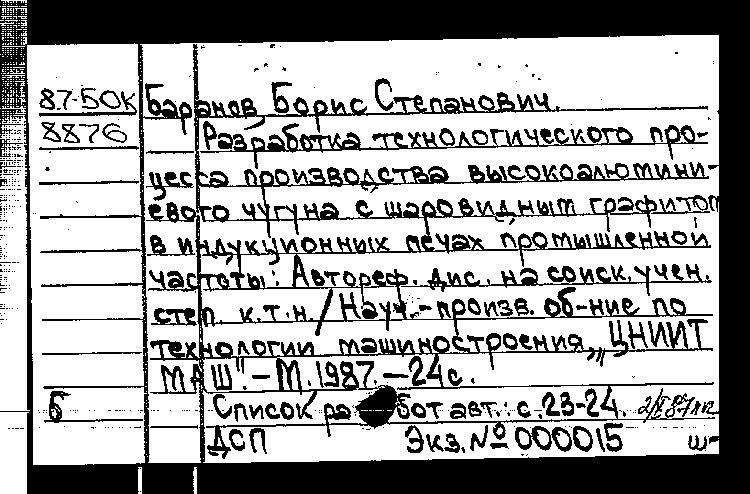 87-50К Баранов Борис Степанович.
8876 Разработка технологического про-
цесса производства высокоалюмини-
евого чугуна с шаровидным графитом
в индукционных печах промышленной
частоты: Автореф. дис. на соиск. учен.
степ. к.т.н./Науч.-произв. об-ние по
технологии машиностроения „ЦНИИТ
МАШ". – М. 1987. – 24 с.
Б Список работ авт.: с. 23-24.
ДСП Экз. № 000015 ш-